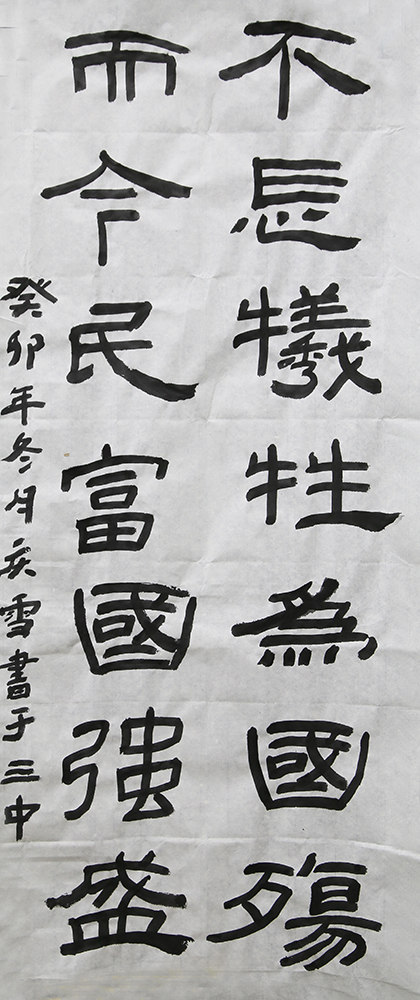 不犧牲為國殤
而今民富國強盛
癸卯年冬月亥雪書于三中